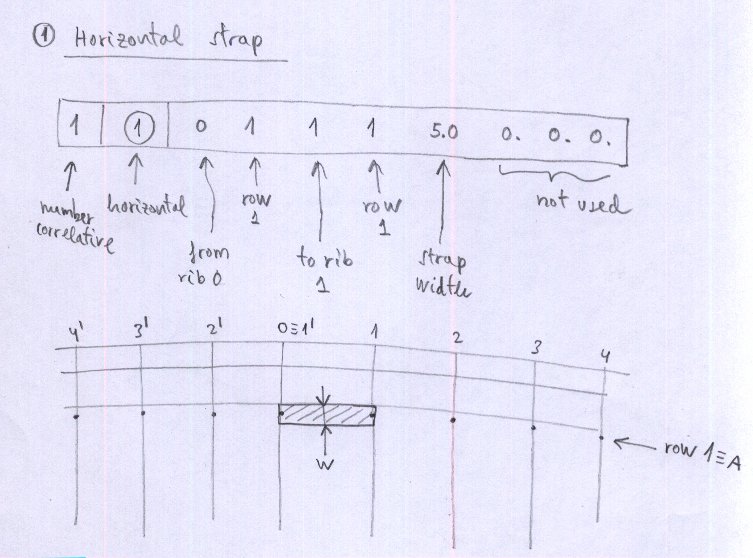 ① Horizontal strap
1 ① 0 1 1 1 5.0 0. 0. 0.
number correlative
horizontal
from rib 0
row 1
to rib 1
row 1
strap width
not used
4' 3' 2' 0≡1' 1 2 3 4
W
row 1≡A